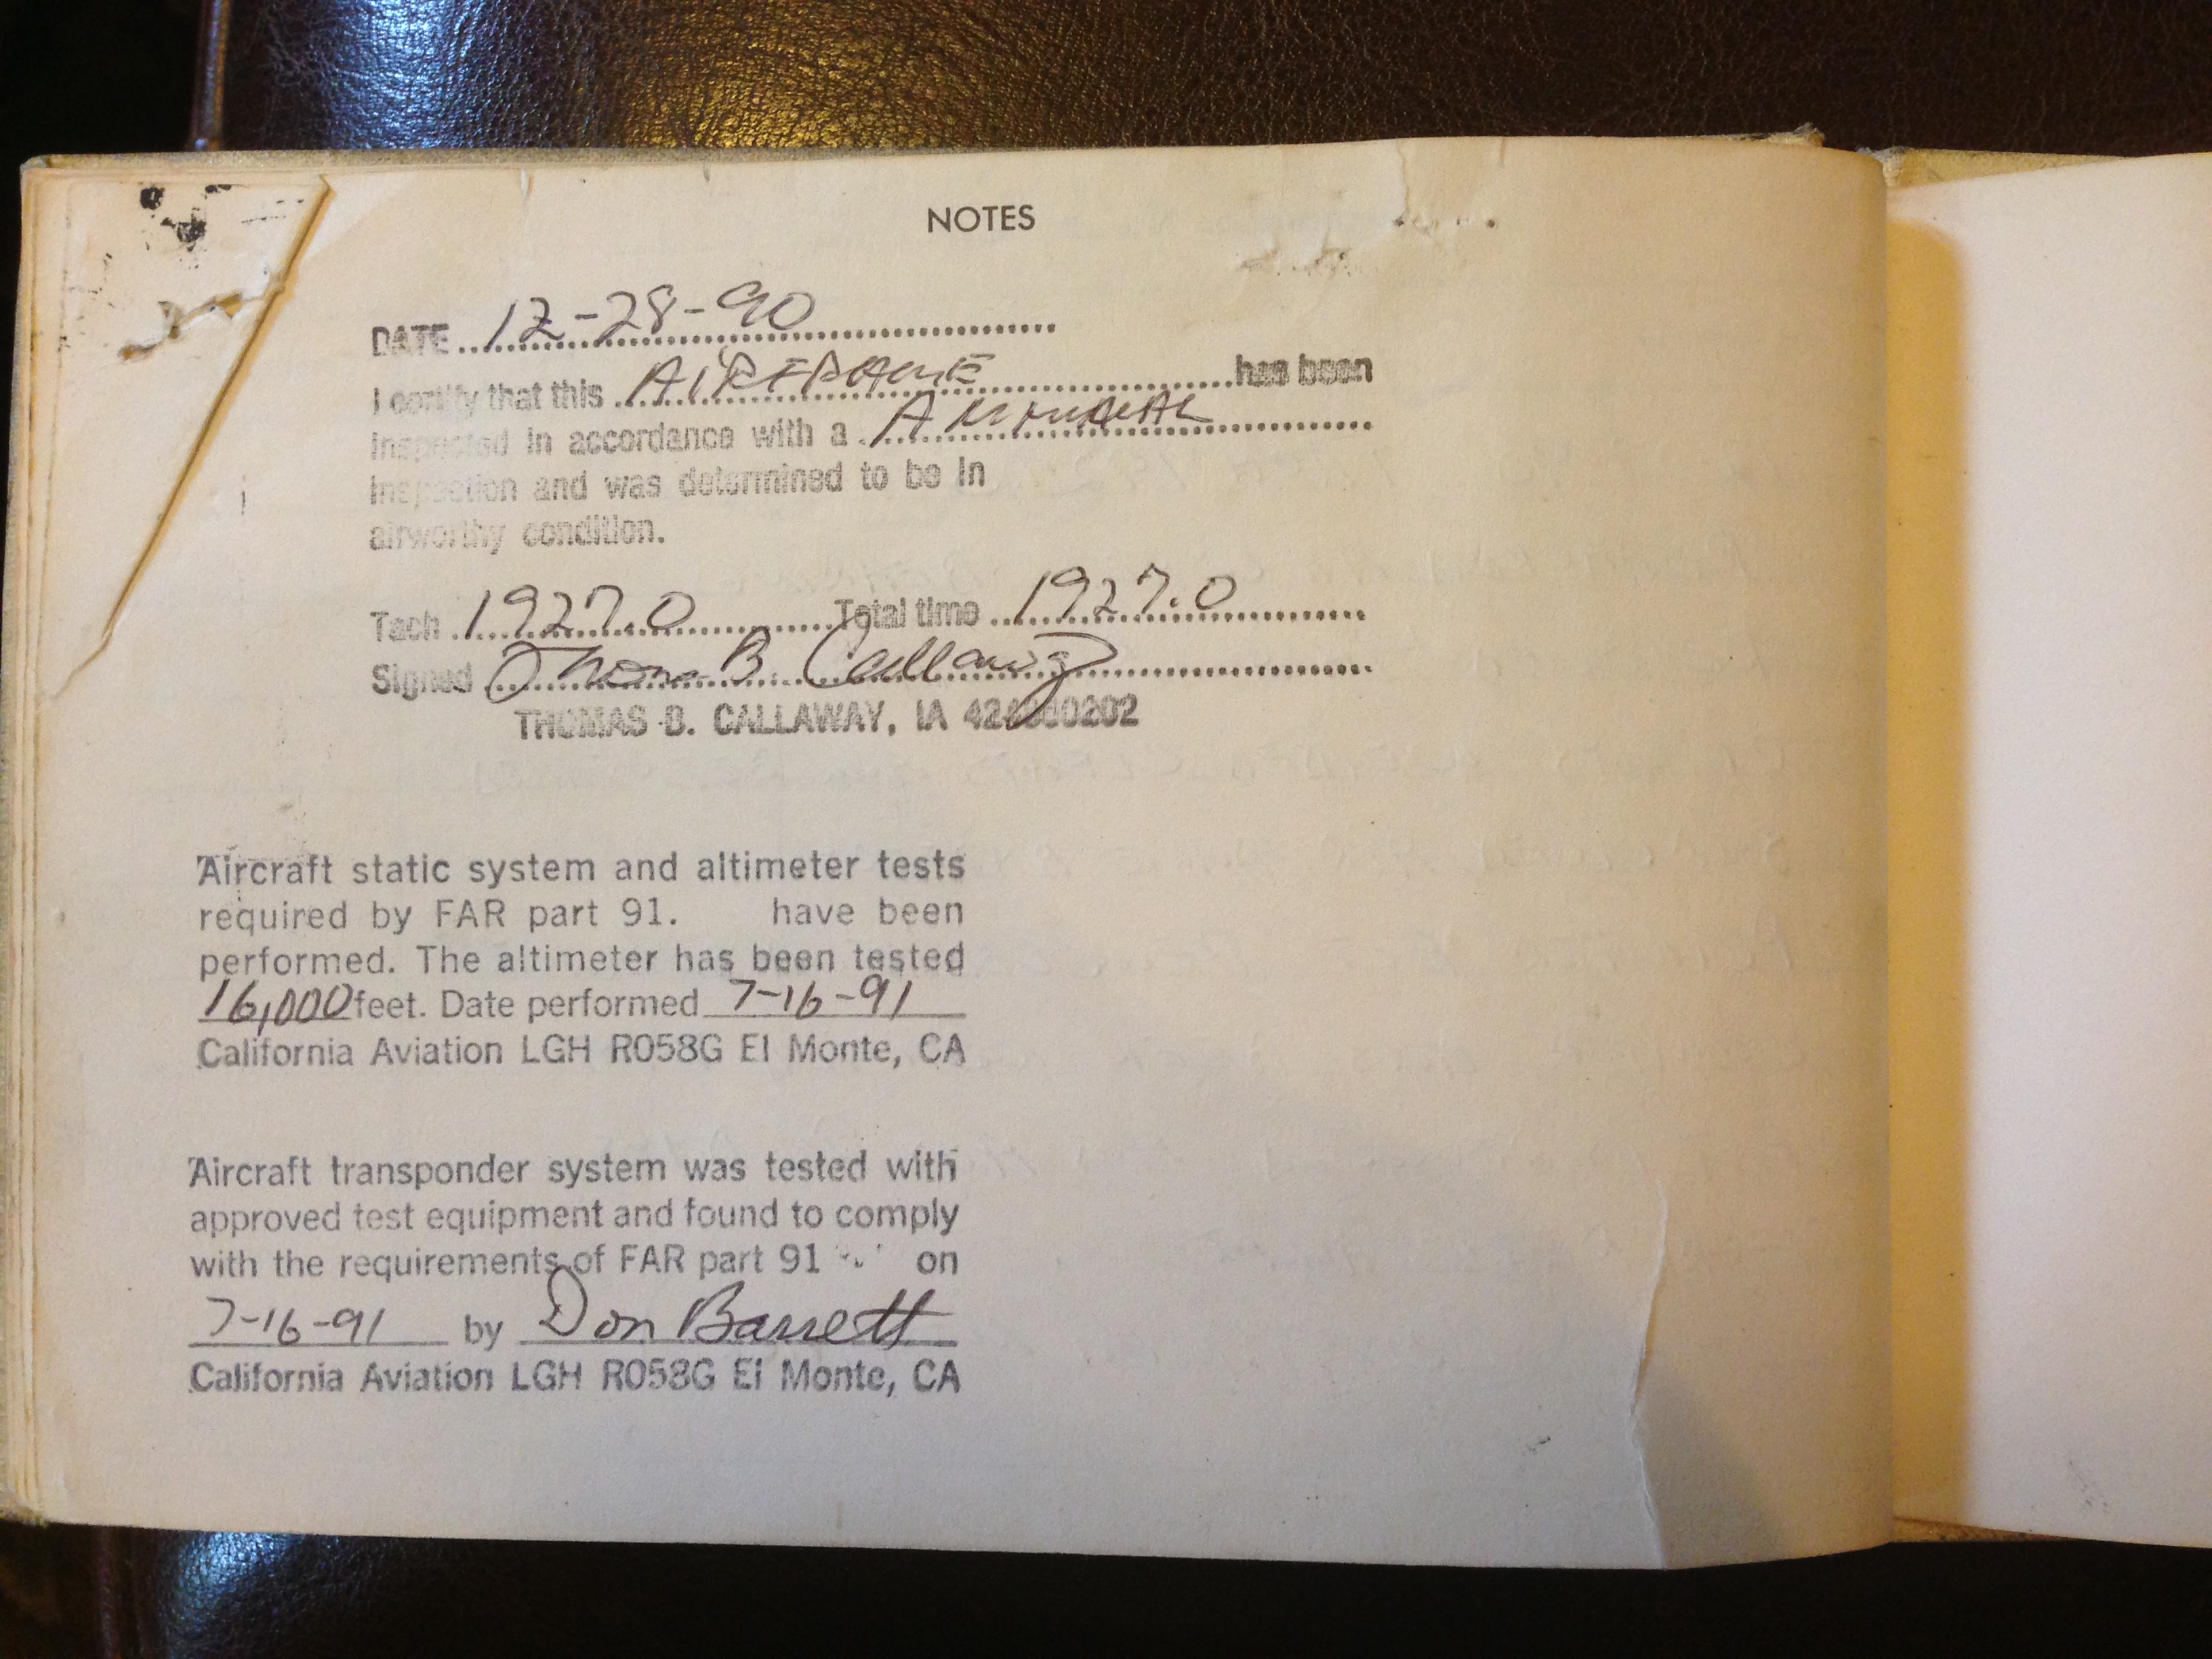 NOTES
DATE 12-28-90
I certify that this AIRFRAME has been
inspected in accordance with a ANNUAL
inspection and was determined to be in
airworthy condition.
Tach 1927.0 Total time 1927.0
Signed Thomas B. Callaway
THOMAS B. CALLAWAY, IA
Aircraft static system and altimeter tests
required by FAR part 91. have been
performed. The altimeter has been tested
16,000 feet. Date performed 7-16-91
California Aviation LGH R058G El Monte, CA
Aircraft transponder system was tested with
approved test equipment and found to comply
with the requirements of FAR part 91 on
7-16-91 by Don Barrett
California Aviation LGH R058G El Monte, CA